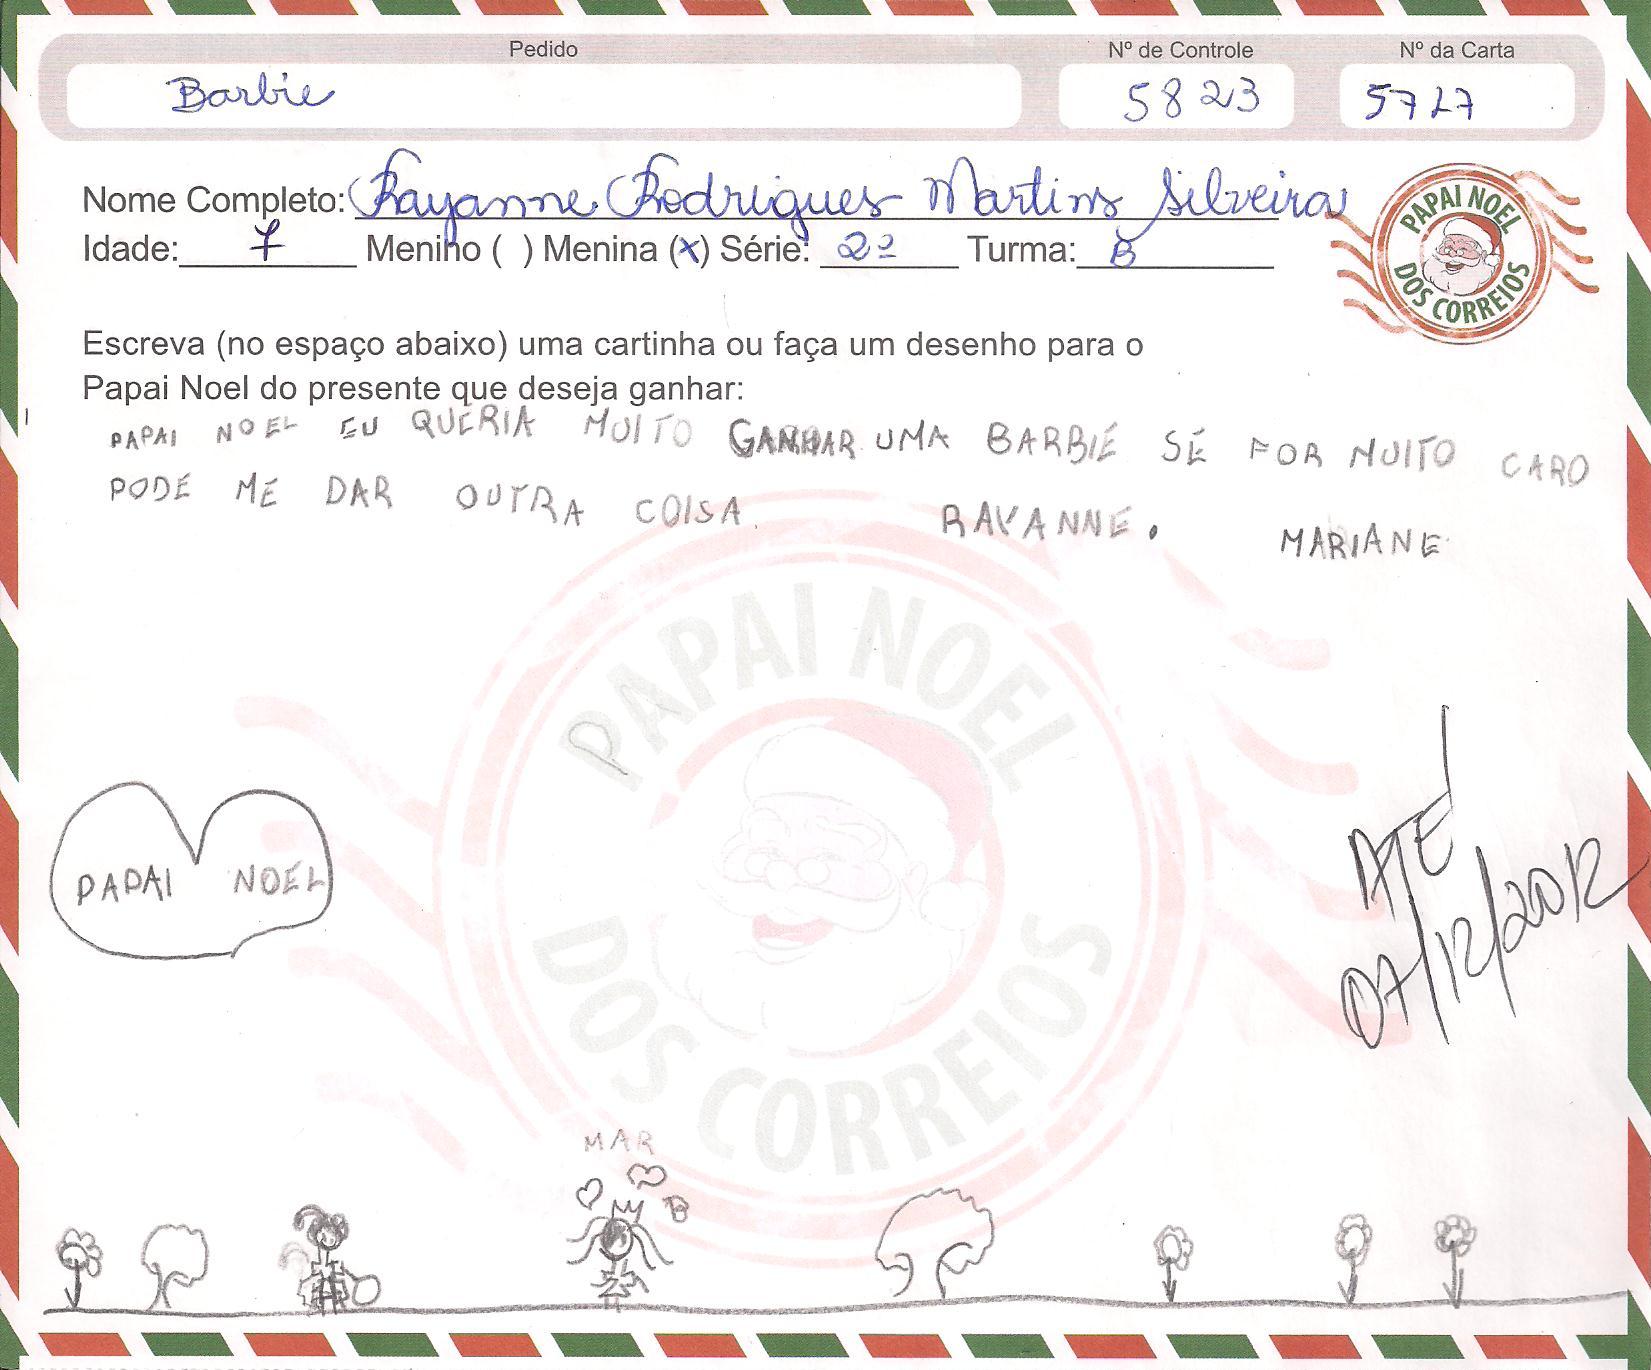 Pedido Nº de Controle Nº da Carta
Barbie 5823 5717
Nome Completo: Rayanne Rodrigues Martins Silveira
Idade: 7 Menino ( ) Menina (x) Série: 2ª Turma: B
PAPAI NOEL DOS CORREIOS
Escreva (no espaço abaixo) uma cartinha ou faça um desenho para o
Papai Noel do presente que deseja ganhar:
PAPAI NOEL EU QUERIA MUITO GANHAR UMA BARBIE SE FOR MUITO CARO
PODE ME DAR OUTRA COISA. RAYANNE. MARIANE
PAPAI NOEL
DOS CORREIOS
PAPAI NOEL
ATÉ
07/12/2012
MAR
B